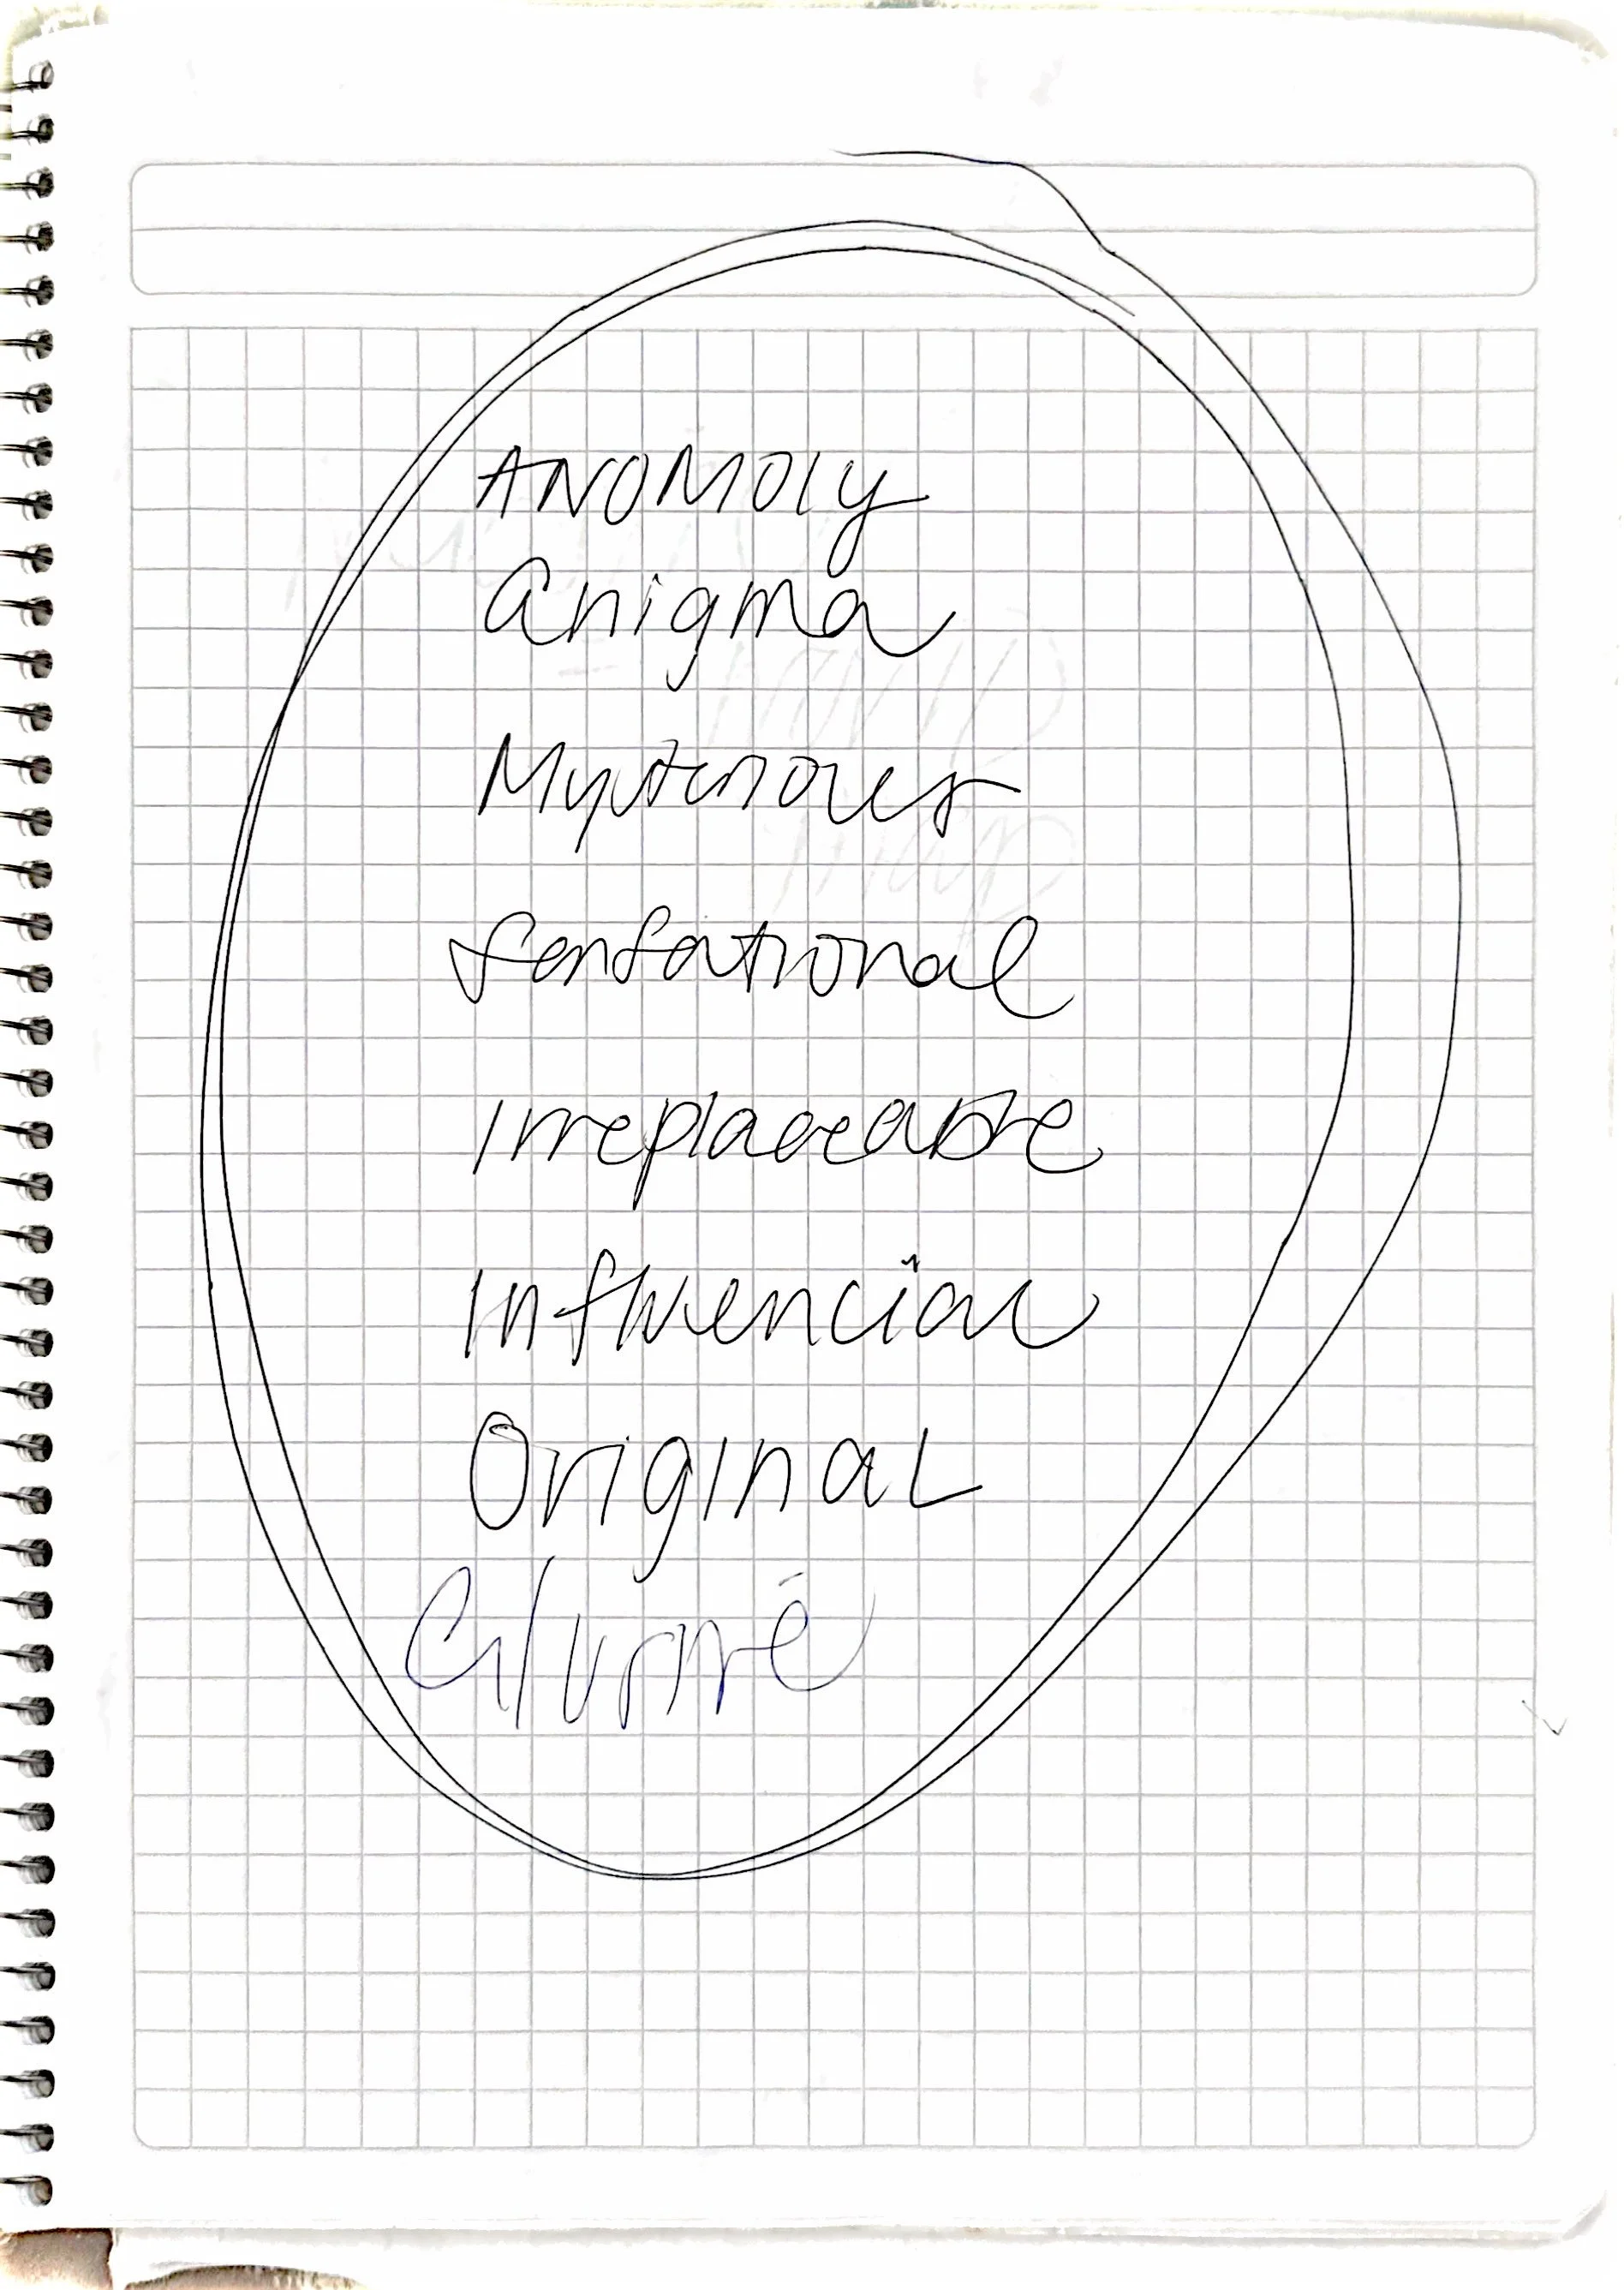 ANOMOly
Anigma
Mysterious
Sensational
Irreplaceable
Influencial
OriginaL